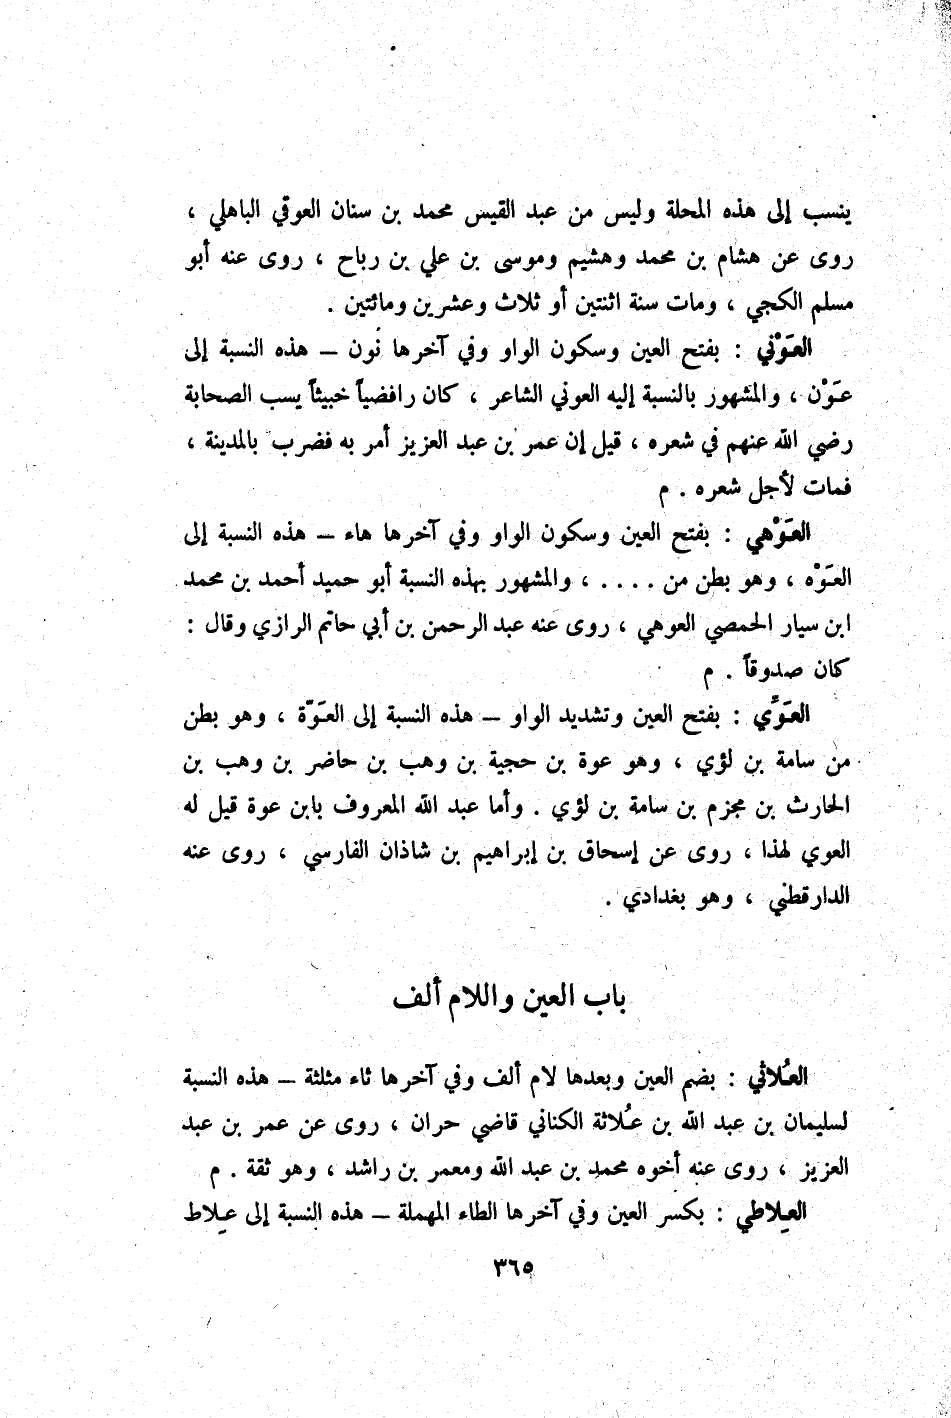 ينسب إلى هذه المحلة وليس من عبد القيس محمد بن سنان العوقي الباهلي ،
روى عن هشام بن محمد وهشيم وموسى بن علي بن رباح ، روى عنه أبو
مسلم الكجي ، ومات سنة اثنتين أو ثلاث وعشرين ومائتين .
العَوْني : بفتح العين وسكون الواو وفي آخرها نون – هذه النسبة إلى
عَوْن ، والمشهور بالنسبة إليه العوني الشاعر ، كان رافضياً خبيثاً يسب الصحابة
رضي الله عنهم في شعره ، قيل إن عمر بن عبد العزيز أمر به فضرب بالمدينة ،
فمات لأجل شعره . م
العَوْهي : بفتح العين وسكون الواو وفي آخرها هاء – هذه النسبة إلى
العَوْه ، وهو بطن من . . . . ، والمشهور بهذه النسبة أبو حميد أحمد بن محمد
ابن سيار الحمصي العوهي ، روى عنه عبد الرحمن بن أبي حاتم الرازي وقال :
كان صدوقاً . م
العَوّي : بفتح العين وتشديد الواو – هذه النسبة إلى العَوّة ، وهو بطن
من سامة بن لؤي ، وهو عوة بن حجية بن وهب بن حاضر بن وهب بن
الحارث بن مجزم بن سامة بن لؤي . وأما عبد الله المعروف بابن عوة قيل له
العوي لهذا ، روى عن إسحاق بن إبراهيم بن شاذان الفارسي ، روى عنه
الدارقطني ، وهو بغدادي .
باب العين واللام ألف
العُلاثي : بضم العين وبعدها لام ألف وفي آخرها ثاء مثلثة – هذه النسبة
لسليمان بن عبد الله بن عُلاثة الكناني قاضي حران ، روى عن عمر بن عبد
العزيز ، روى عنه أخوه محمد بن عبد الله ومعمر بن راشد ، وهو ثقة . م
العِلاطي : بكسر العين وفي آخرها الطاء المهملة – هذه النسبة إلى عِلاط
٣٦٥